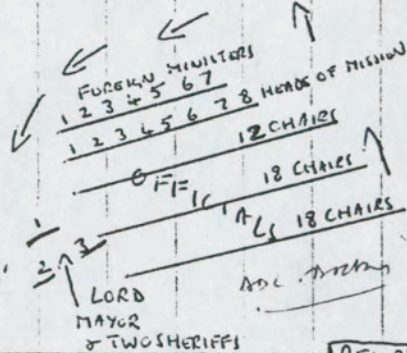 FOREIGN MINISTERS
1 2 3 4 5 6 7
1 2 3 4 5 6 7 8 HEADS OF MISSION
12 CHAIRS
OFFICIALS
18 CHAIRS
18 CHAIRS
1
2 3
LORD
MAYOR
& TWO SHERIFFS
ADC